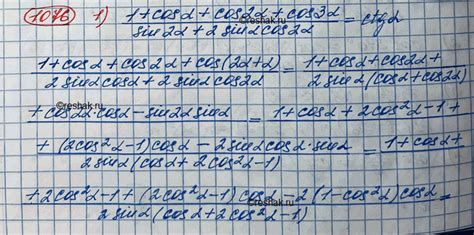 1076 1) (1+cosα+cos2α+cos3α)/(sin2α+2sinαcos2α) = ctgα
(1+cosα+cos2α+cos(2α+α))/(2sinαcosα+2sinαcos2α) = (1+cosα+cos2α+)/(2sinα(cosα+cos2α))
(+cos2α·cosα-sin2αsinα)/ = (1+cosα+2cos²α-1+
+(2cos²α-1)cosα-2sinαcosα·sinα)/(2sinα(cosα+2cos²α-1)) = (1+cosα+
+2cos²α-1+(2cos²α-1)cosα-2(1-cos²α)cosα)/(2sinα(cosα+2cos²α-1)) =
©reshak.ru
©reshak.ru
©reshak.ru